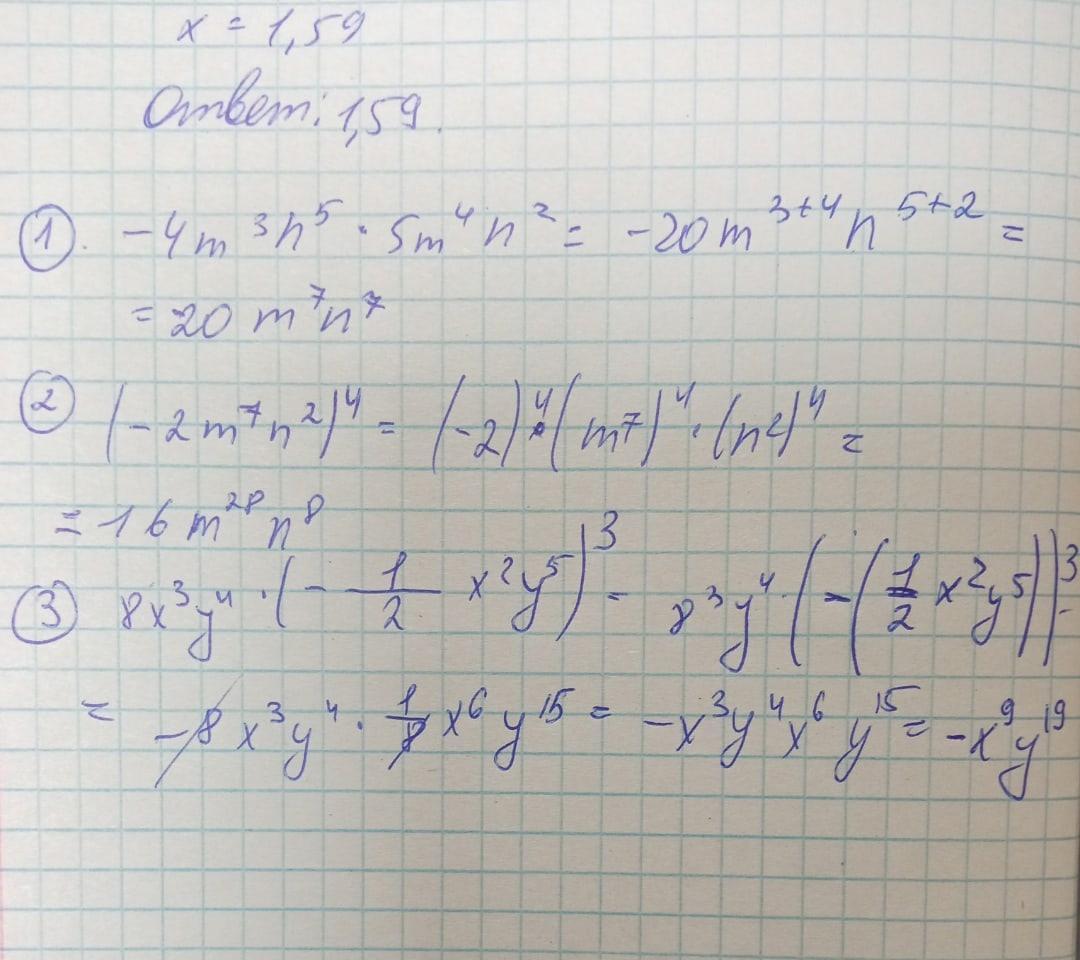 x = 1,59
Ответ: 1,59.
① . -4m³n⁵ · 5m⁴n² = -20m³⁺⁴n⁵⁺² =
= 20 m⁷n⁷
② (-2m⁷n²)⁴ = (-2)⁴·(m⁷)⁴·(n²)⁴ =
= 16 m²⁸ n⁸
③ 8x³y⁴ · (- 1/2 x²y⁵)³ = 8³y⁴ · (-(1/2 x²y⁵))³ =
= -8x³y⁴ · 1/8 x⁶ y¹⁵ = -x³y⁴x⁶ y¹⁵ = -x⁹y¹⁹